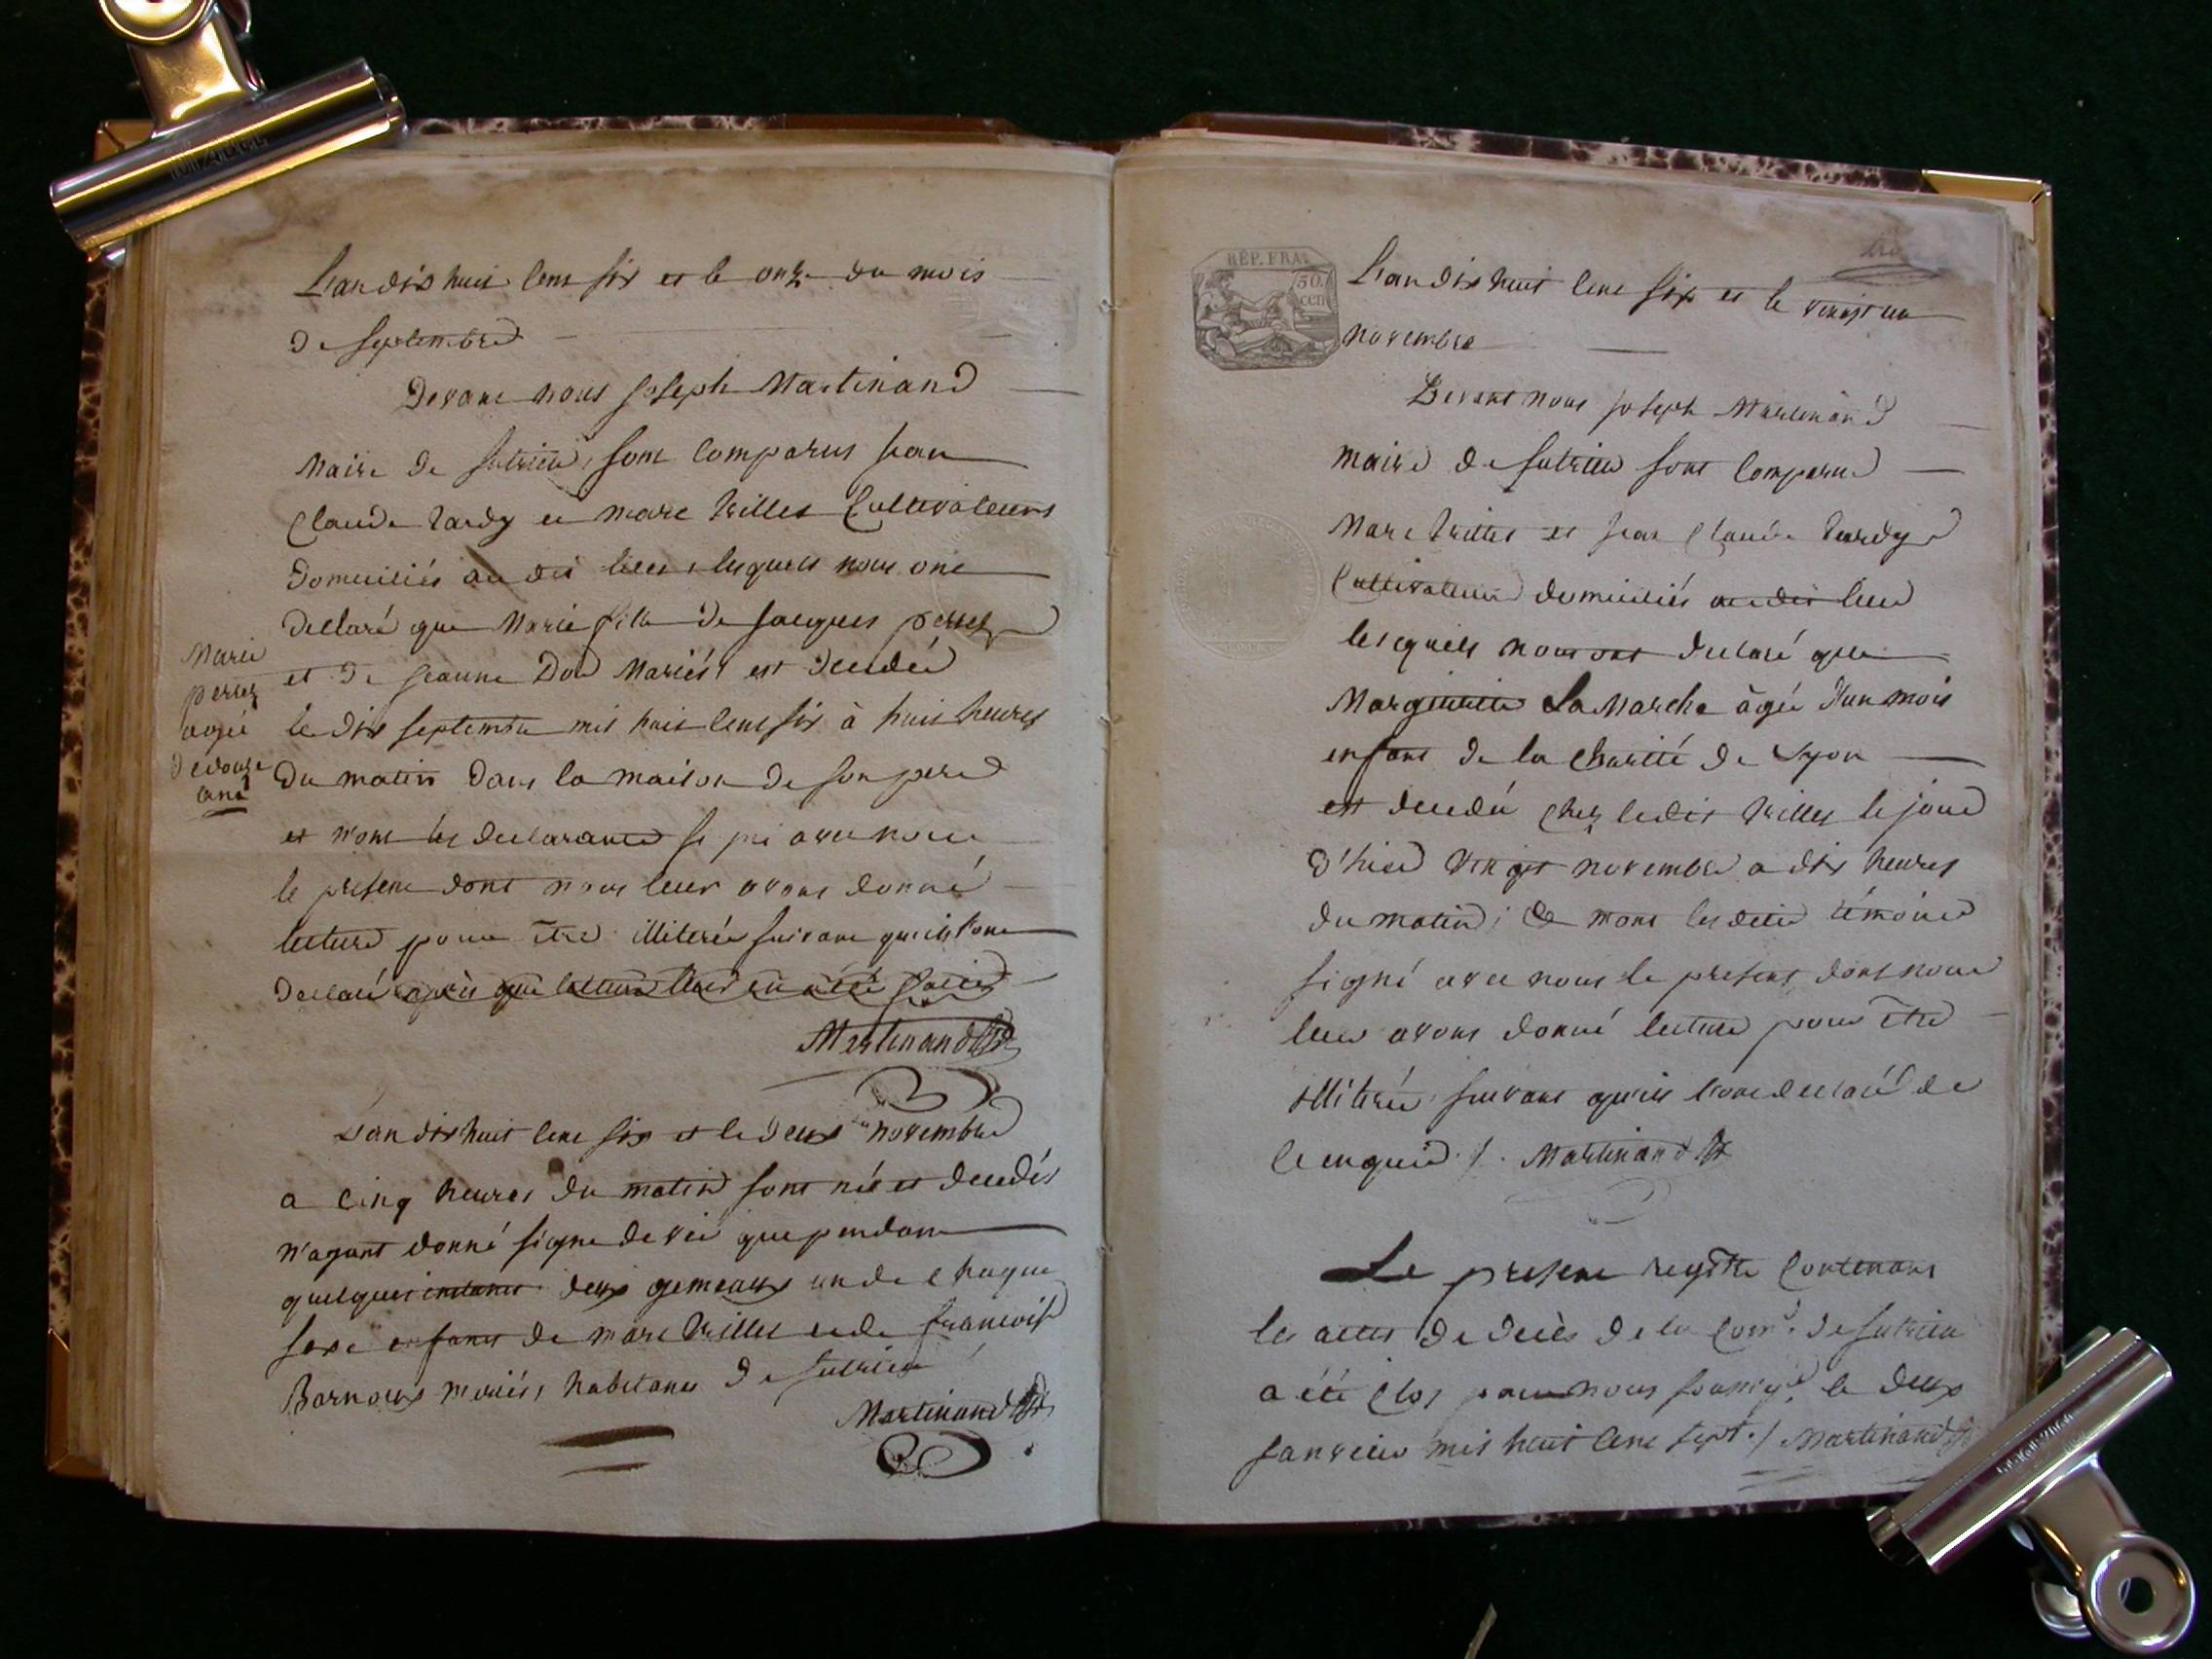 L'an dix huit cent six et le onze du mois
de septembre
Devant nous joseph Martinand
Maire de sutrieu, sont comparus jean
Claude tardy et marc trilles Cultivateurs
domiciliés au dit lieu, lesquels nous ont
declaré que Marie fille de jacques perret
et de jeanne Don Mariés est decedée
le dix septembre mil huit cent six à huit heures
du matin dans la maison de son pere
et n'ont les declarants si né avec nous
le present dont nous leur avons donné
lecture pour être illiterés suivant qu'ils l'ont
declaré après que lecture leur en a été faite
Marie
perret
agée
de douze
ans
Martinand
L'an dix huit cent six et le deux novembre
a cinq heures du matin sont né et decedés
n'ayant donné signe de vie que pendant
quelques instants deux gemeaux un de chaque
sexe enfants de marc trilles et de francoise
Barnoux mariés, habitants de sutrieu
Martinand
RÉP. FRA
50.
cen
L'an dix huit cent six et le vingt un
novembre
Devant nous joseph Martinand
maire de sutrieu sont comparus
Marc trilles et jean Claude tardy
Cultivateurs domiciliés au dit lieu
lesquels nous ont declaré que
La Marche agée d'un mois
enfant de la Charité de Lyon
est decedé chez le dit trilles le jour
d'hier vingt novembre a dix heures
du matin; et n'ont les dits témoins
signé avec nous le present dont nous
leur avons donné lecture pour être
illiterés suivant qu'ils l'ont declaré de
ce enquis ./. Martinand
Le present registre contenant
les actes de décès de la com.e de sutrieu
a été clos par nous soussigé le deux
janvier mil huit cent sept ./ Martinand